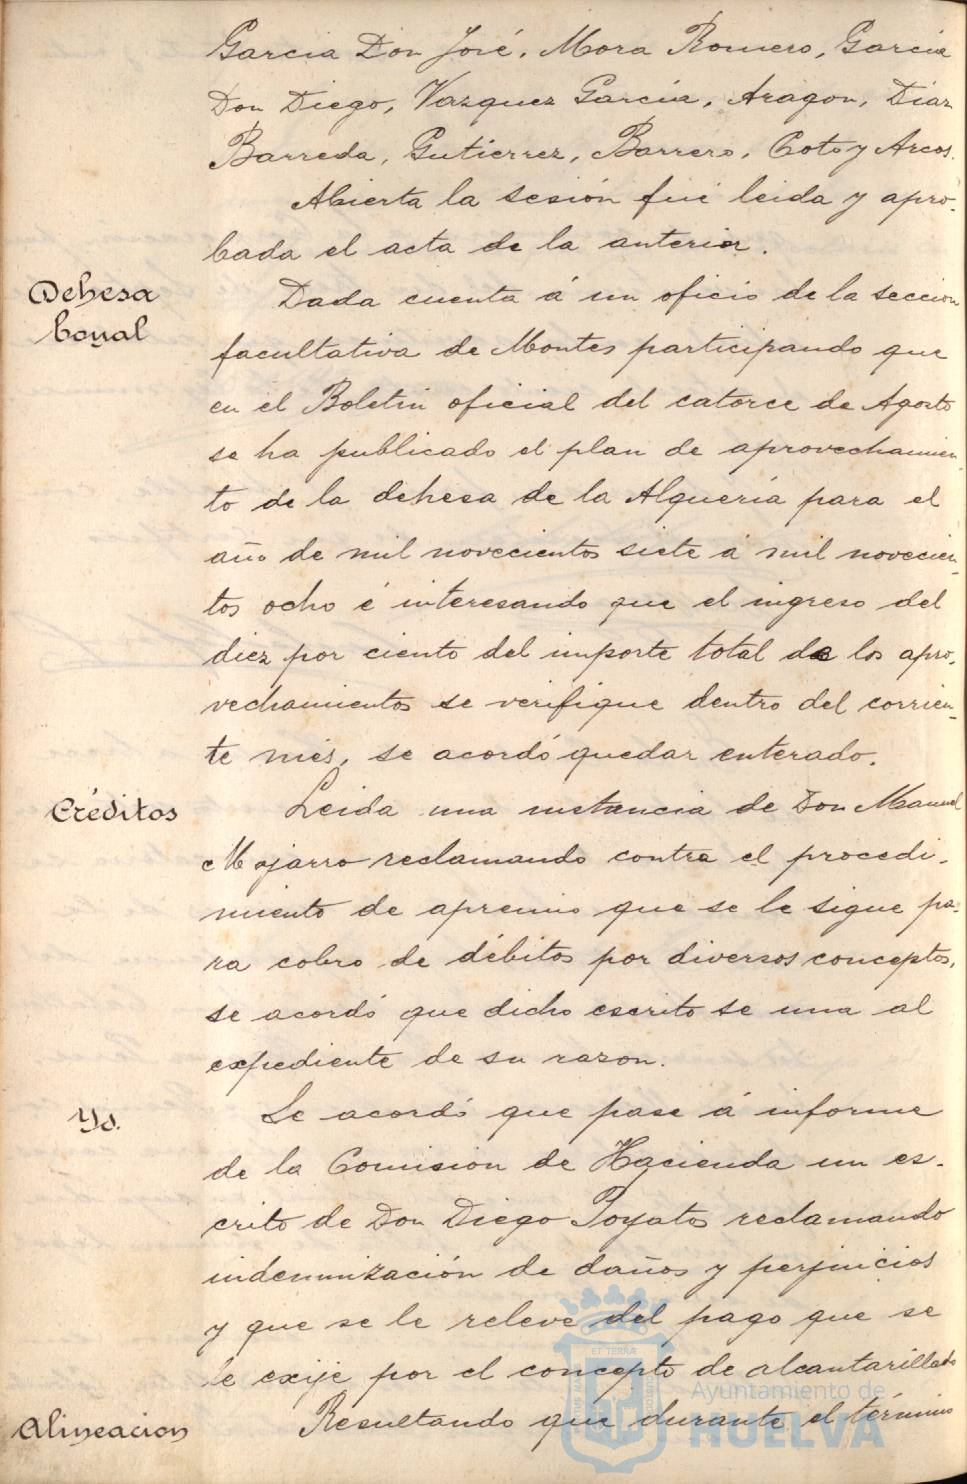 Garcia Don José, Mora Romero, Garcia
Don Diego, Vazquez Garcia, Aragon, Diaz
Barreda, Gutierrez, Barrero, Coto y Arcos.
Abierta la sesión fué leida y apro-
bada el acta de la anterior.
Dehesa
boyal
Dada cuenta á un oficio de la seccion
facultativa de Montes participando que
en el Boletin oficial del catorce de Agosto
se ha publicado el plan de aprovechamien-
to de la dehesa de la Alqueria para el
año de mil novecientos siete á mil novecien-
tos ocho é interesando que el ingreso del
diez por ciento del importe total de los apro-
vechamientos se verifique dentro del corrien-
te mes, se acordó quedar enterado.
Créditos
Leida una instancia de Don Manuel
Mojarro reclamando contra el procedi-
miento de apremio que se le sigue pa-
ra cobro de débitos por diversos conceptos,
se acordó que dicho escrito se una al
expediente de su razon.
Yd.
Se acordó que pase á informe
de la Comision de Hacienda un es-
crito de Don Diego Poyatos reclamando
indemnización de daños y perjuicios
y que se le releve del pago que se
le exije por el concepto de alcantarillado
Alineacion
Resultando que durante el término
Ayuntamiento de
HUELVA